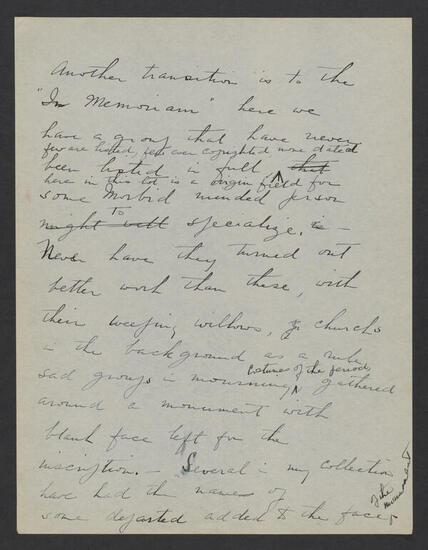 Another transition is to the
"In Memoriam" here we
have a group that have never
few are listed, few ever copyrighted, none dated
been listed in full that
here in this lot is a origin field for
some Morbid minded person
might well to specialize, is -
Never have they turned out
better work than these, with
their weeping willows, churchs
in the background as a rule
costumes of the periods
sad groups in mourning gathered
around a monument with
blank face left for the
inscription. - Several in my collection
have had the names of
some departed added to the face
of the monument